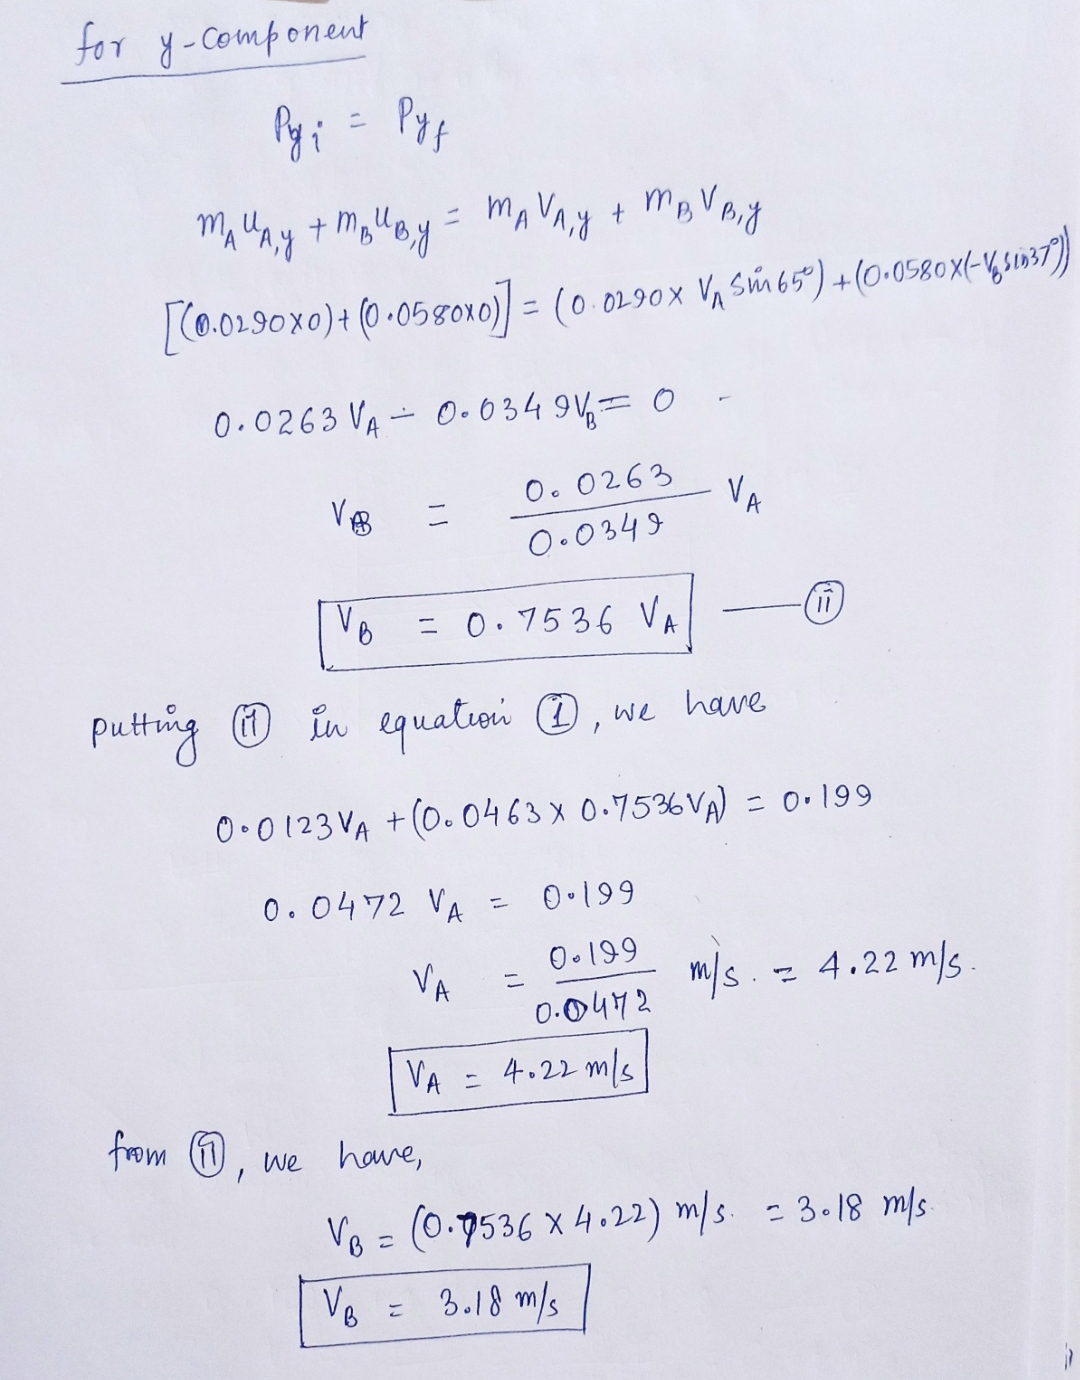 for y-component
Pyi = Pyf
mAuA,y + mBuB,y = mAVA,y + mBVB,y
[(0.0290x0)+(0.0580x0)] = (0.0290x VA Sin65°)+(0.0580x(-VBsin37°))
0.0263 VA - 0.0349VB = 0
VB = 0.0263/0.0349 VA
VB = 0.7536 VA — (ii)
putting (ii) in equation (1), we have
0.0123VA +(0.0463 x 0.7536VA) = 0.199
0.0472 VA = 0.199
VA = 0.199/0.0472 m/s. = 4.22 m/s.
VA = 4.22 m/s
from (ii), we have,
VB = (0.7536 x 4.22) m/s. = 3.18 m/s.
VB = 3.18 m/s